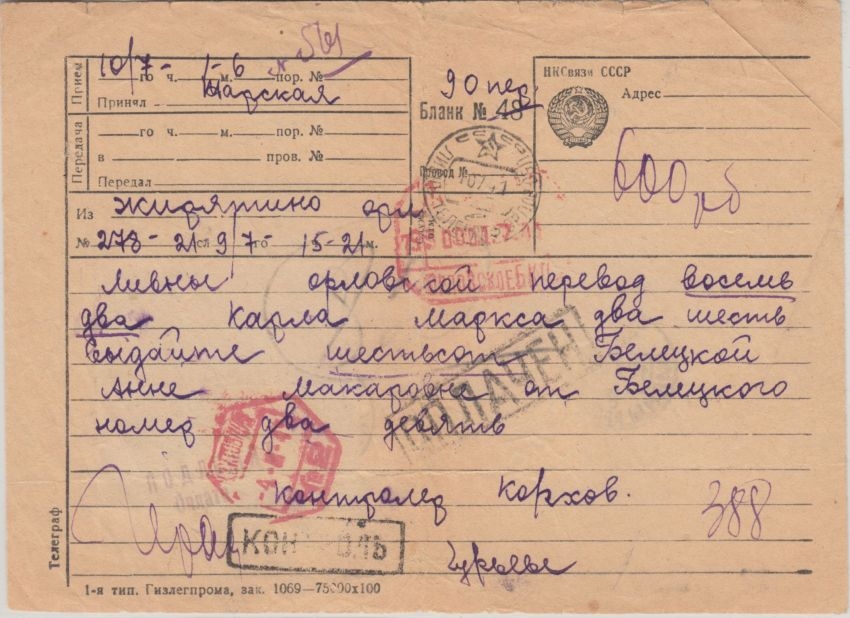 Прием 10/7- го ч. 1-6 м. пор. № 561
Принял Нарская
Передача го ч. м. пор. №
в пров. №
Передал
90 пер.
Бланк № 48
Провод №
НКСвязи СССР
Адрес
600 рб
Из Жирятино орл
№ 278-21 сл 9/7- го 15-21 м.
Ливны орловской перевод восемь
два Карла Маркса два шесть
выдайте шестьсот Белецкой
Анне Макаровне от Белецкого
номер два девять
ОПЛАЧЕН
контролер Коржов.
388
КОНТРОЛЬ
Телеграф
1-я тип. Гизлегпрома, зак. 1069—75000х100